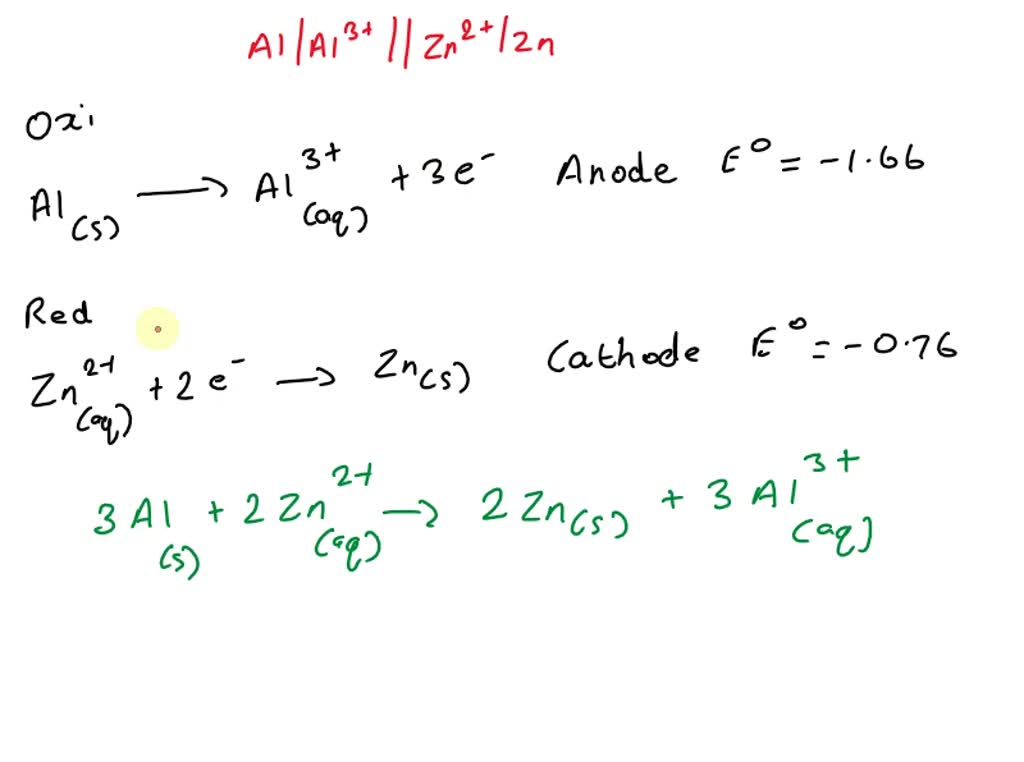 Al/Al³⁺//Zn²⁺/Zn
Oxi
Al(s) → Al³⁺(aq) + 3e⁻ Anode E⁰ = -1.66
Red
Zn²⁺(aq) + 2e⁻ → Zn(s) Cathode E⁰ = -0.76
3Al(s) + 2Zn²⁺(aq) → 2Zn(s) + 3Al³⁺(aq)